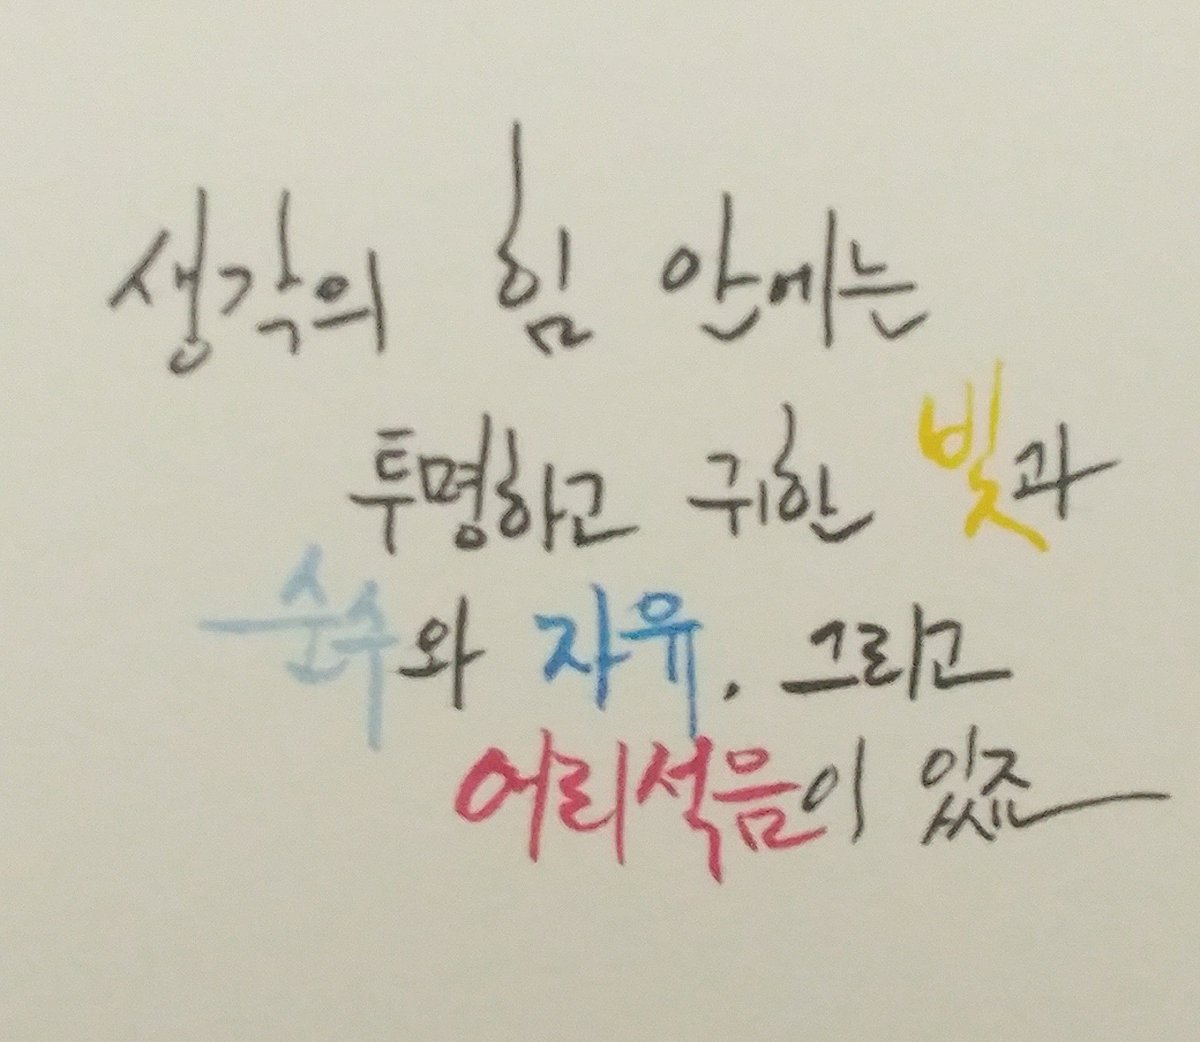 생각의 힘 안에는
투명하고 귀한 빛과
순수와 자유. 그리고
어리석음이 있죠